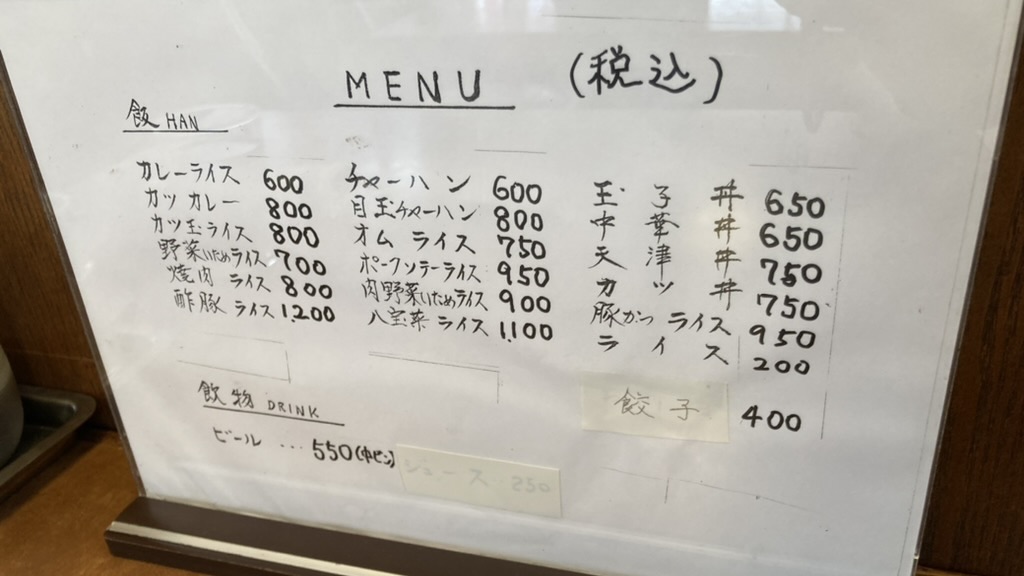 MENU (税込)
飯 HAN
カレーライス 600
カツカレー 800
カツ玉ライス 800
野菜いためライス 700
焼肉ライス 800
酢豚ライス 1,200
チャーハン 600
目玉チャーハン 800
オムライス 750
ポークソテーライス 950
肉野菜いためライス 900
八宝菜ライス 1,100
玉子丼 650
中華丼 650
天津丼 750
カツ丼 750
豚かつライス 950
ライス 200
餃子 400
飲物 DRINK
ビール … 550(中ビン)
ジュース 250